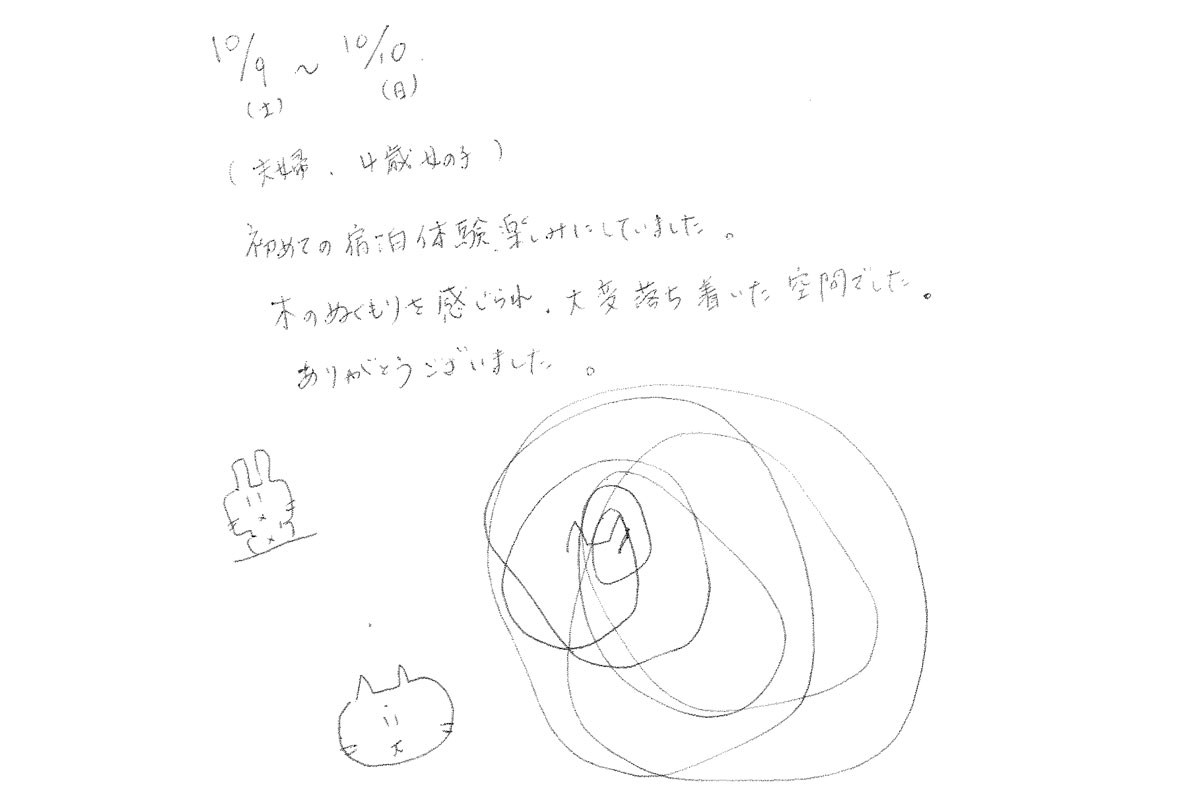 10/9 ~ 10/10
(土) (日)
(夫婦、4歳女の子)
初めての宿泊体験楽しみにしていました。
木のぬくもりを感じられ、大変落ち着いた空間でした。
ありがとうございました。